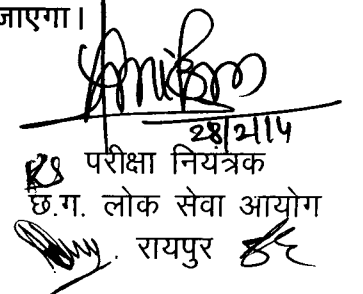 जाएगा।
28/2/14
परीक्षा नियंत्रक
छ.ग. लोक सेवा आयोग
रायपुर